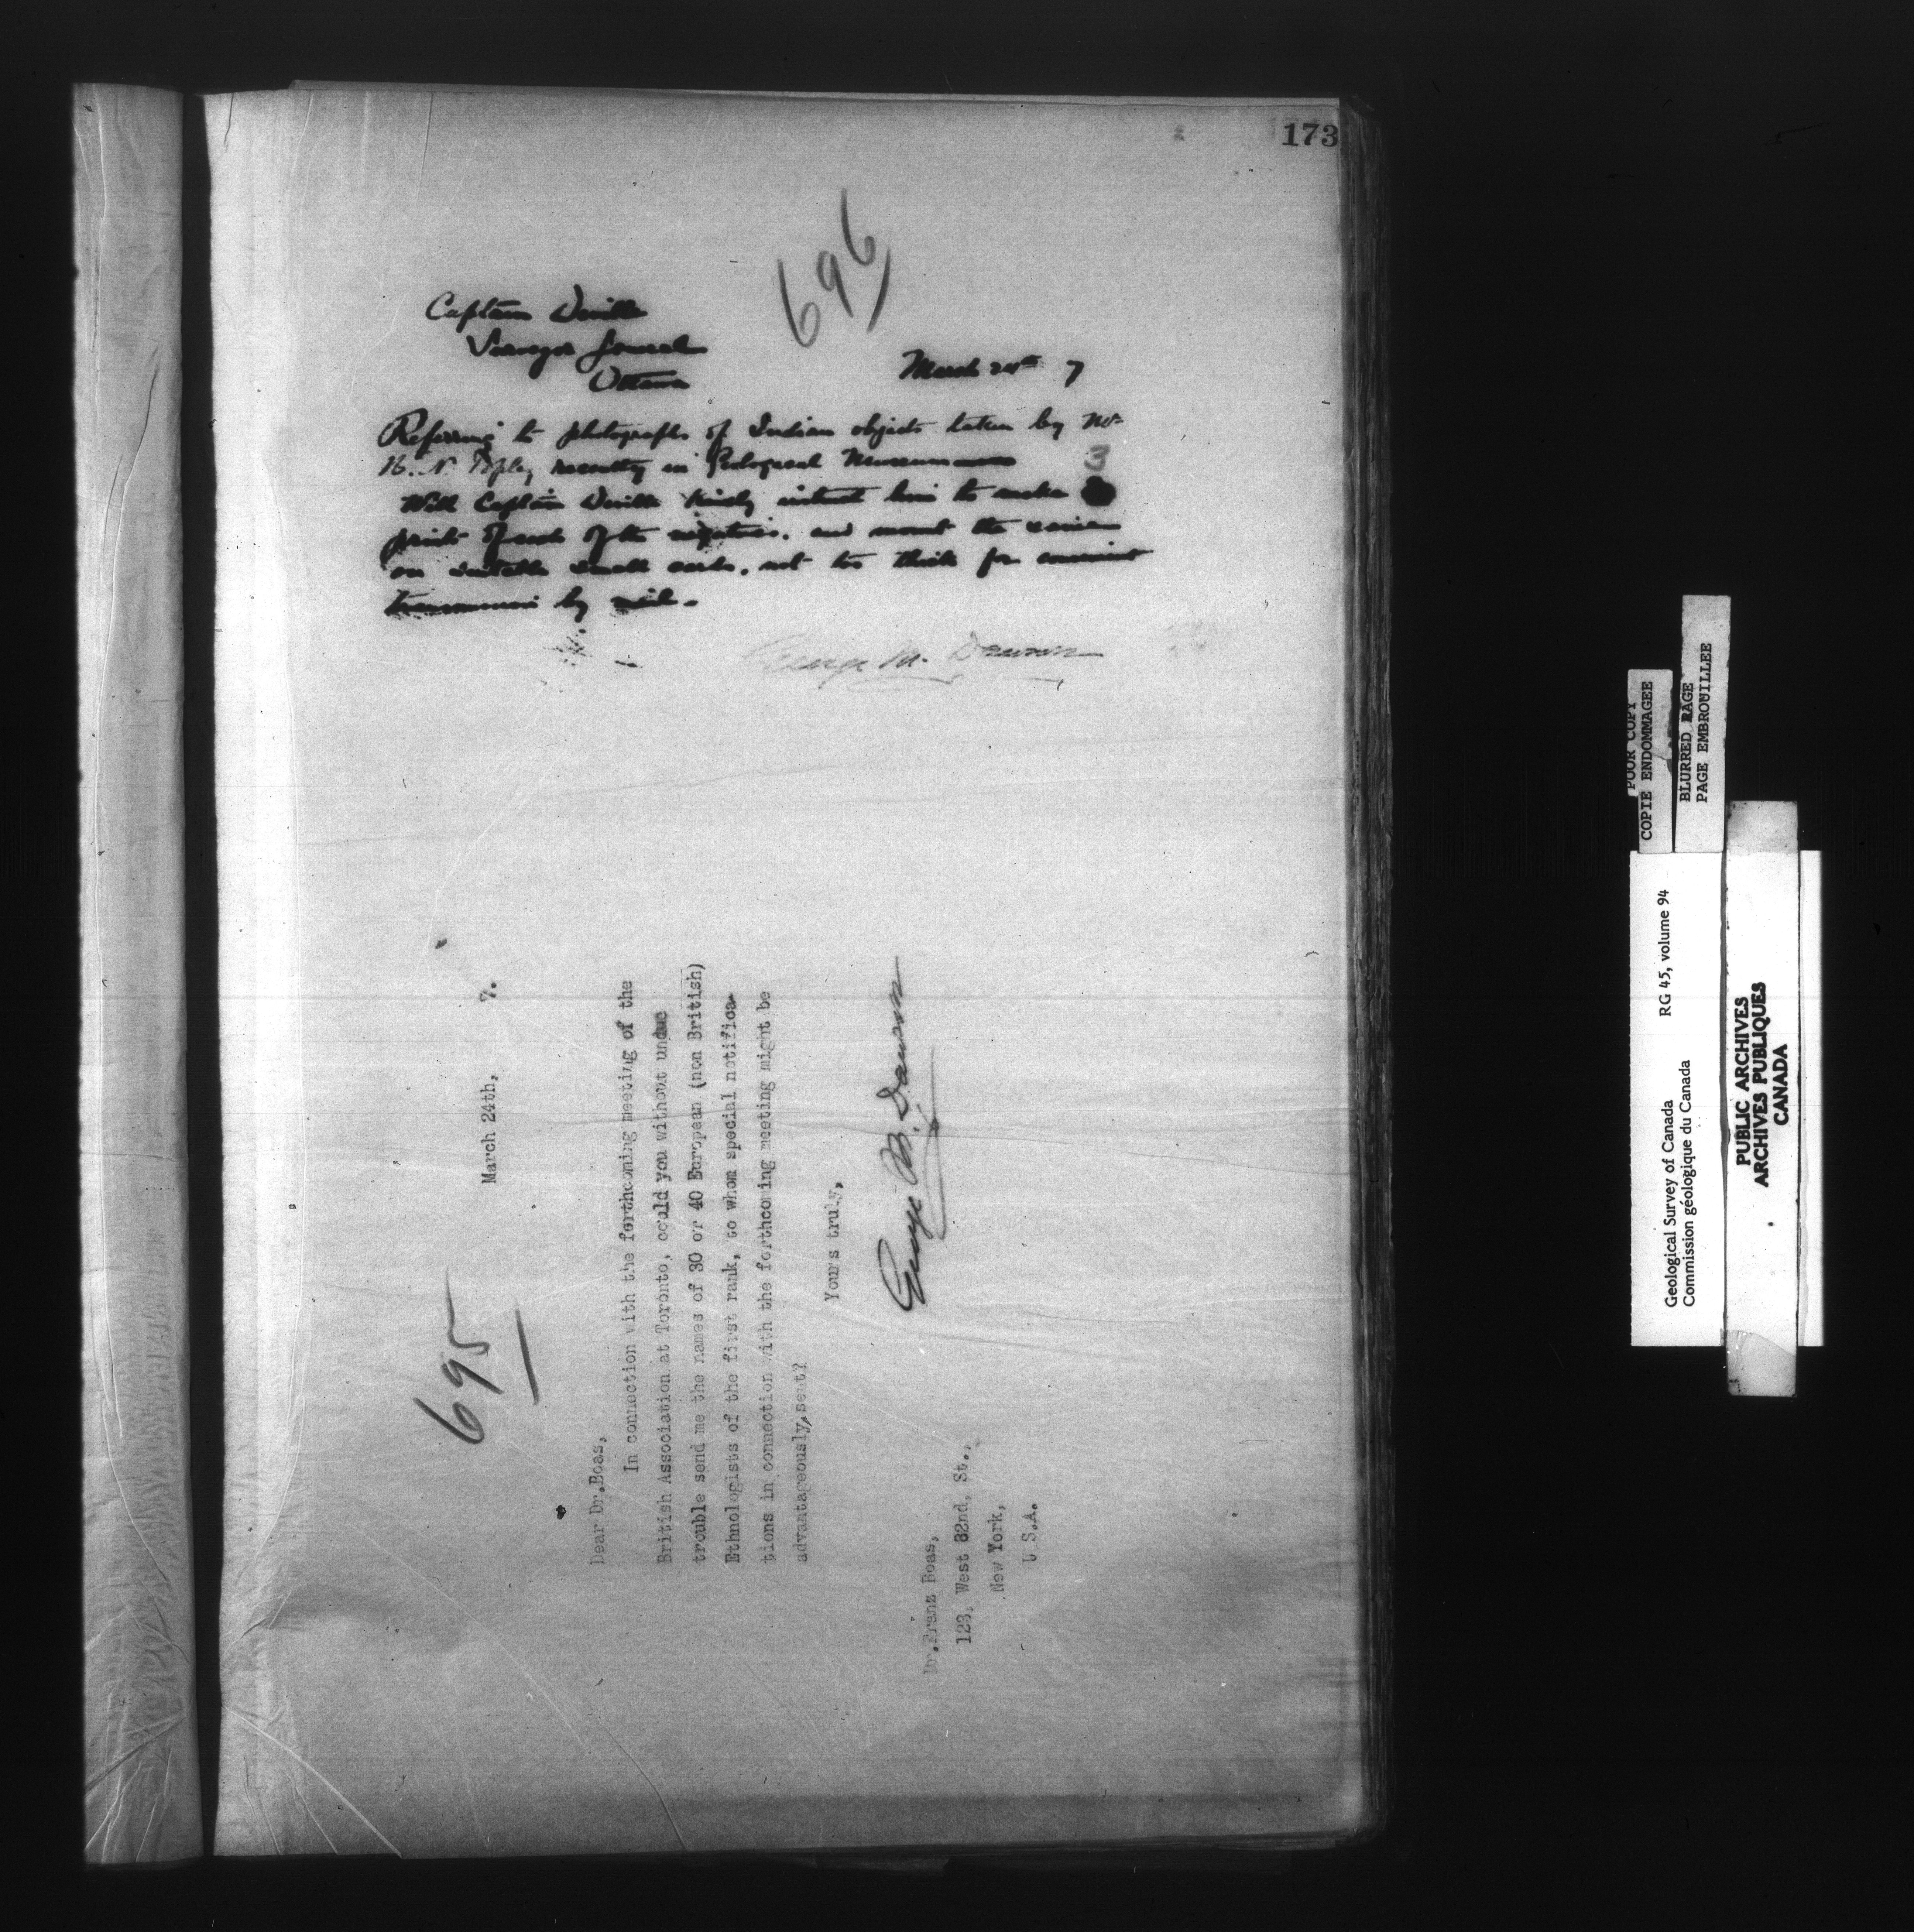 173
696
Captain Deville
Surveyor General
Ottawa
March 24th 7
Referring to photographs of Indian objects taken by Mr
H. N. Topley recently in Geological Museum
3
Will Captain Deville kindly instruct him to make
prints of each of the negatives, and mount the same
on suitable small cards, not too thick for convenient
transmission by mail.
George M. Dawson
695
March 24th, 7.
Dear Dr.Boas,
In connection with the forthcoming meeting of the
British Association at Toronto, could you without undue
trouble send me the names of 30 or 40 European (non British)
Ethnologists of the first rank, to whom special notifica-
tions in connection with the forthcoming meeting might be
advantageously sent?
Yours truly,
George M. Dawson
Dr.Franz Boas,
123, West 82nd, St.,
New York,
U.S.A.
POOR COPY
COPIE ENDOMMAGEE
BLURRED PAGE
PAGE EMBROUILLEE
Geological Survey of Canada RG 45, volume 94
Commission géologique du Canada
PUBLIC ARCHIVES
ARCHIVES PUBLIQUES
CANADA